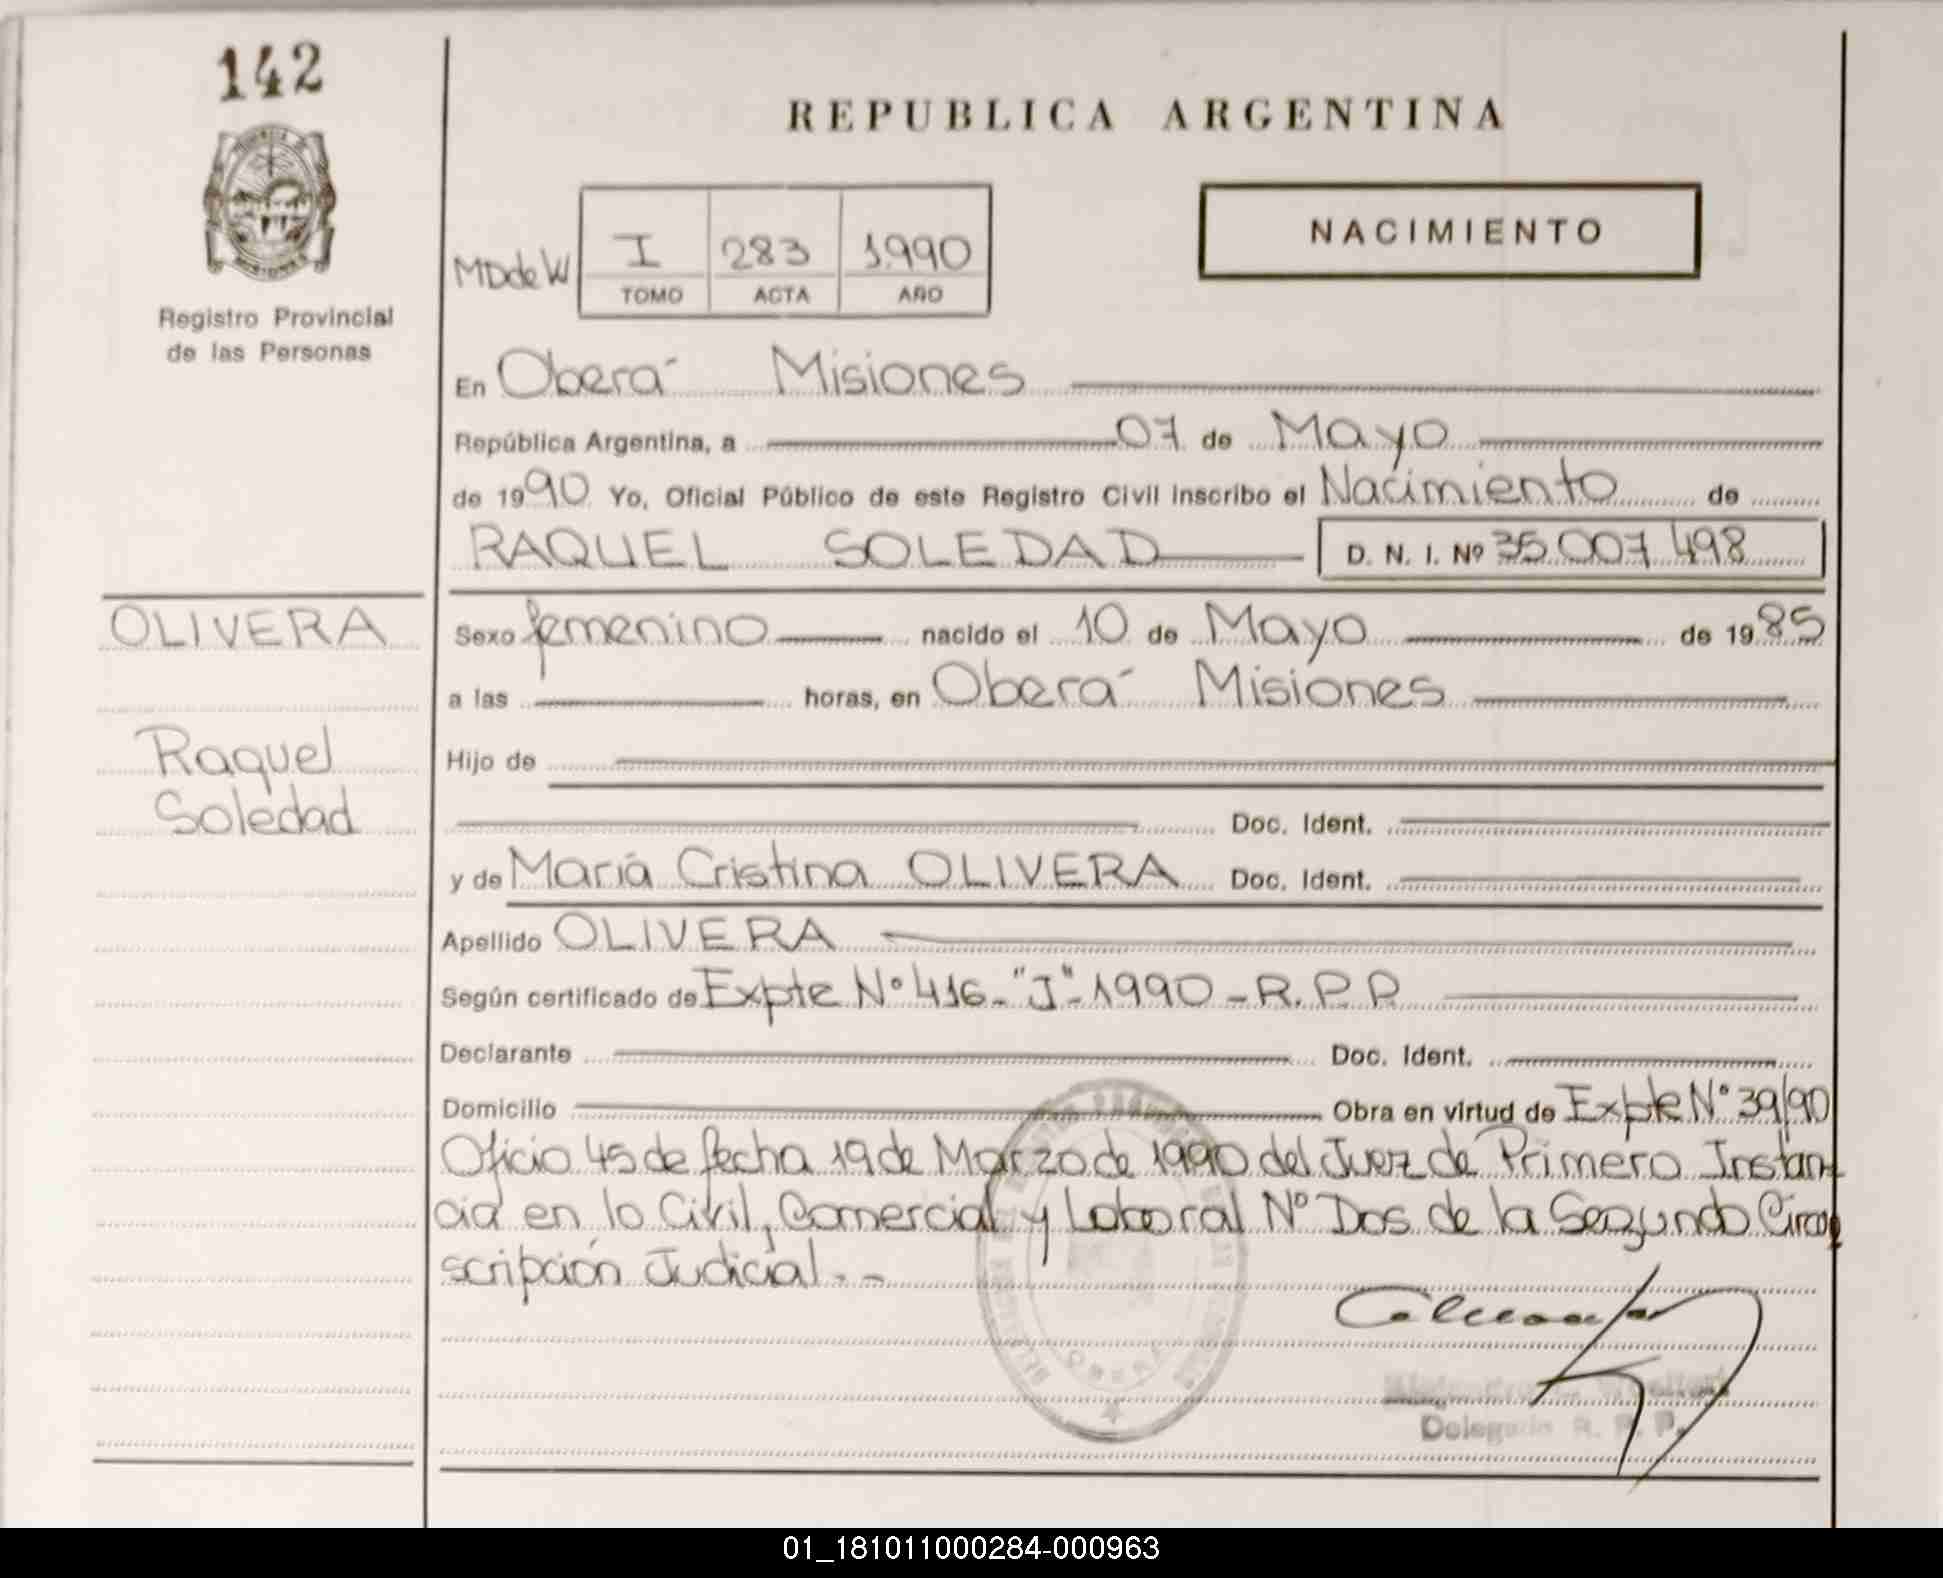 142
REPUBLICA ARGENTINA
MISIONES
Registro Provincial
de las Personas
MDdeW
I 283 1.990
TOMO ACTA AÑO
NACIMIENTO
En Oberá Misiones
República Argentina, a 07 de Mayo
de 1990 Yo, Oficial Público de este Registro Civil inscribo el Nacimiento de
RAQUEL SOLEDAD D. N. I. Nº 35.007.498
OLIVERA
Raquel
Soledad
Sexo femenino nacido el 10 de Mayo de 1985
a las horas, en Oberá Misiones
Hijo de
Doc. Ident.
y de María Cristina OLIVERA Doc. Ident.
Apellido OLIVERA
Según certificado de Expte Nº 416-"J"-1990-R.P.P
Declarante Doc. Ident.
Domicilio Obra en virtud de Expte Nº 39/90
Oficio 45 de fecha 19 de Marzo de 1990 del Juez de Primero Instan-
cia en lo Civil, Comercial y Laboral Nº Dos de la Segundo Circun
scripción Judicial.-
Delegado R. P. P.
01_181011000284-000963